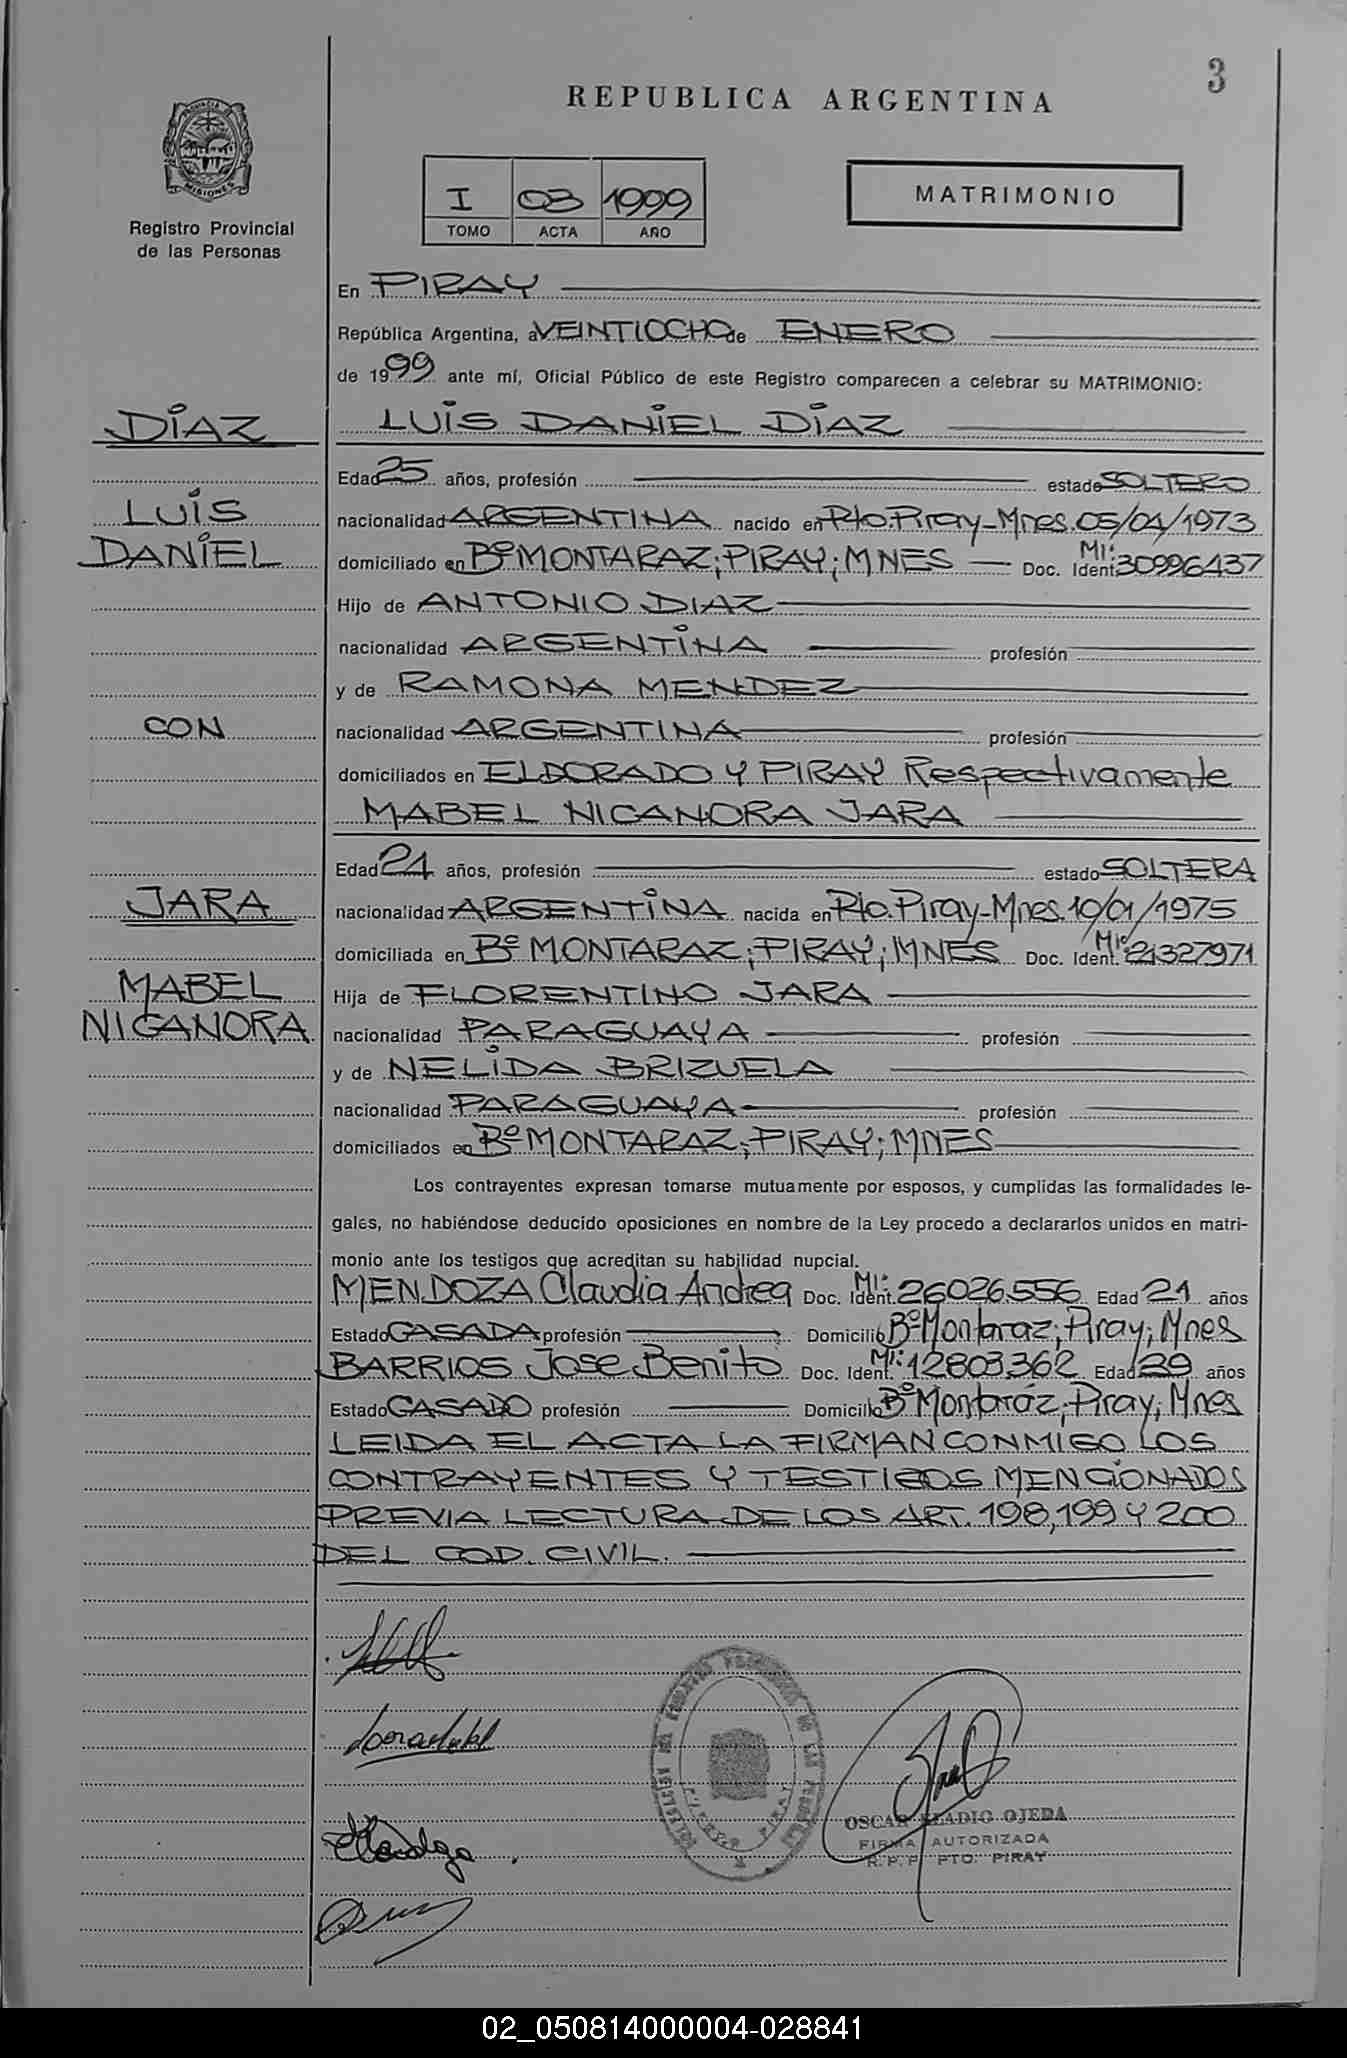 3
REPUBLICA ARGENTINA
PROVINCIA DE MISIONES
Registro Provincial
de las Personas
I 03 1999
TOMO ACTA AÑO
MATRIMONIO
En PIRAY
República Argentina, a VEINTIOCHO de ENERO
de 1999 ante mí, Oficial Público de este Registro comparecen a celebrar su MATRIMONIO:
DíAZ
LUíS DANíEL DíAZ
Edad 25 años, profesión estado SOLTERO
LUíS
nacionalidad ARGENTINA nacido en Pto. Piray-Mnes. 05/04/1973
DANíEL
domiciliado en Bº MONTARAZ; PIRAY; MNES Doc. Ident. MI: 30996437
Hijo de ANTONIO DIAZ
nacionalidad ARGENTíNA profesión
y de RAMONA MENDEZ
CON
nacionalidad ARGENTINA profesión
domiciliados en ELDORADO Y PIRAY Respectivamente
MABEL NICANORA JARA
Edad 24 años, profesión estado SOLTERA
JARA
nacionalidad ARGENTíNA nacida en Pto. Piray-Mnes. 10/01/1975
domiciliada en Bº MONTARAZ; PIRAY; MNES Doc. Ident.
MABEL
Hija de FLORENTINO JARA
NICANORA
nacionalidad PARAGUAYA profesión
y de NELíDA BRIZUELA
nacionalidad PARAGUAYA profesión
domiciliados en Bº MONTARAZ; PIRAY; MNES
Los contrayentes expresan tomarse mutuamente por esposos, y cumplidas las formalidades le-
gales, no habiéndose deducido oposiciones en nombre de la Ley procedo a declararlos unidos en matri-
monio ante los testigos que acreditan su habilidad nupcial.
MENDOZA Claudia Andrea Doc. Ident. MI: 26026.556 Edad 21 años
Estado CASADA profesión Domicilio Bº Montaraz; Piray; Mnes
BARRIOS Jose Benito Doc. Ident. MI: 12803.362 Edad 39 años
Estado CASADO profesión Domicilio Bº Montaráz; Piray; Mnes
LEIDA EL ACTA LA FIRMAN CONMIGO LOS
CONTRAYENTES Y TESTIGOS MENCIONADOS
PREVIA LECTURA DE LOS ART. 198, 199 Y 200
DEL COD. CIVIL.
OSCAR ELADIO OJEDA
FIRMA AUTORIZADA
R. P. P. PTO. PIRAY
02_050814000004-028841